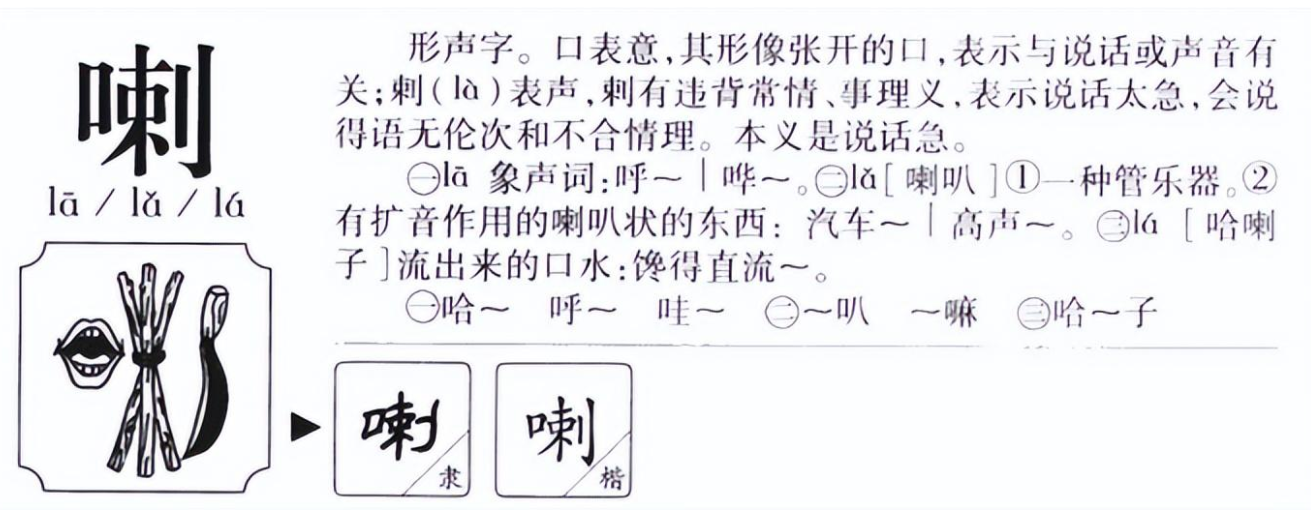 喇
lā / lǎ / lá
形声字。口表意,其形像张开的口,表示与说话或声音有
关;剌(là)表声,剌有违背常情、事理义,表示说话太急,会说
得语无伦次和不合情理。本义是说话急。
㊀lā 象声词:呼～|哗～。㊁lǎ[喇叭]①一种管乐器。②
有扩音作用的喇叭状的东西:汽车～|高声～。㊂lá [哈喇
子]流出来的口水:馋得直流～。
㊀哈～ 呼～ 哇～ ㊁～叭 ～嘛 ㊂哈～子
喇 隶
喇 楷